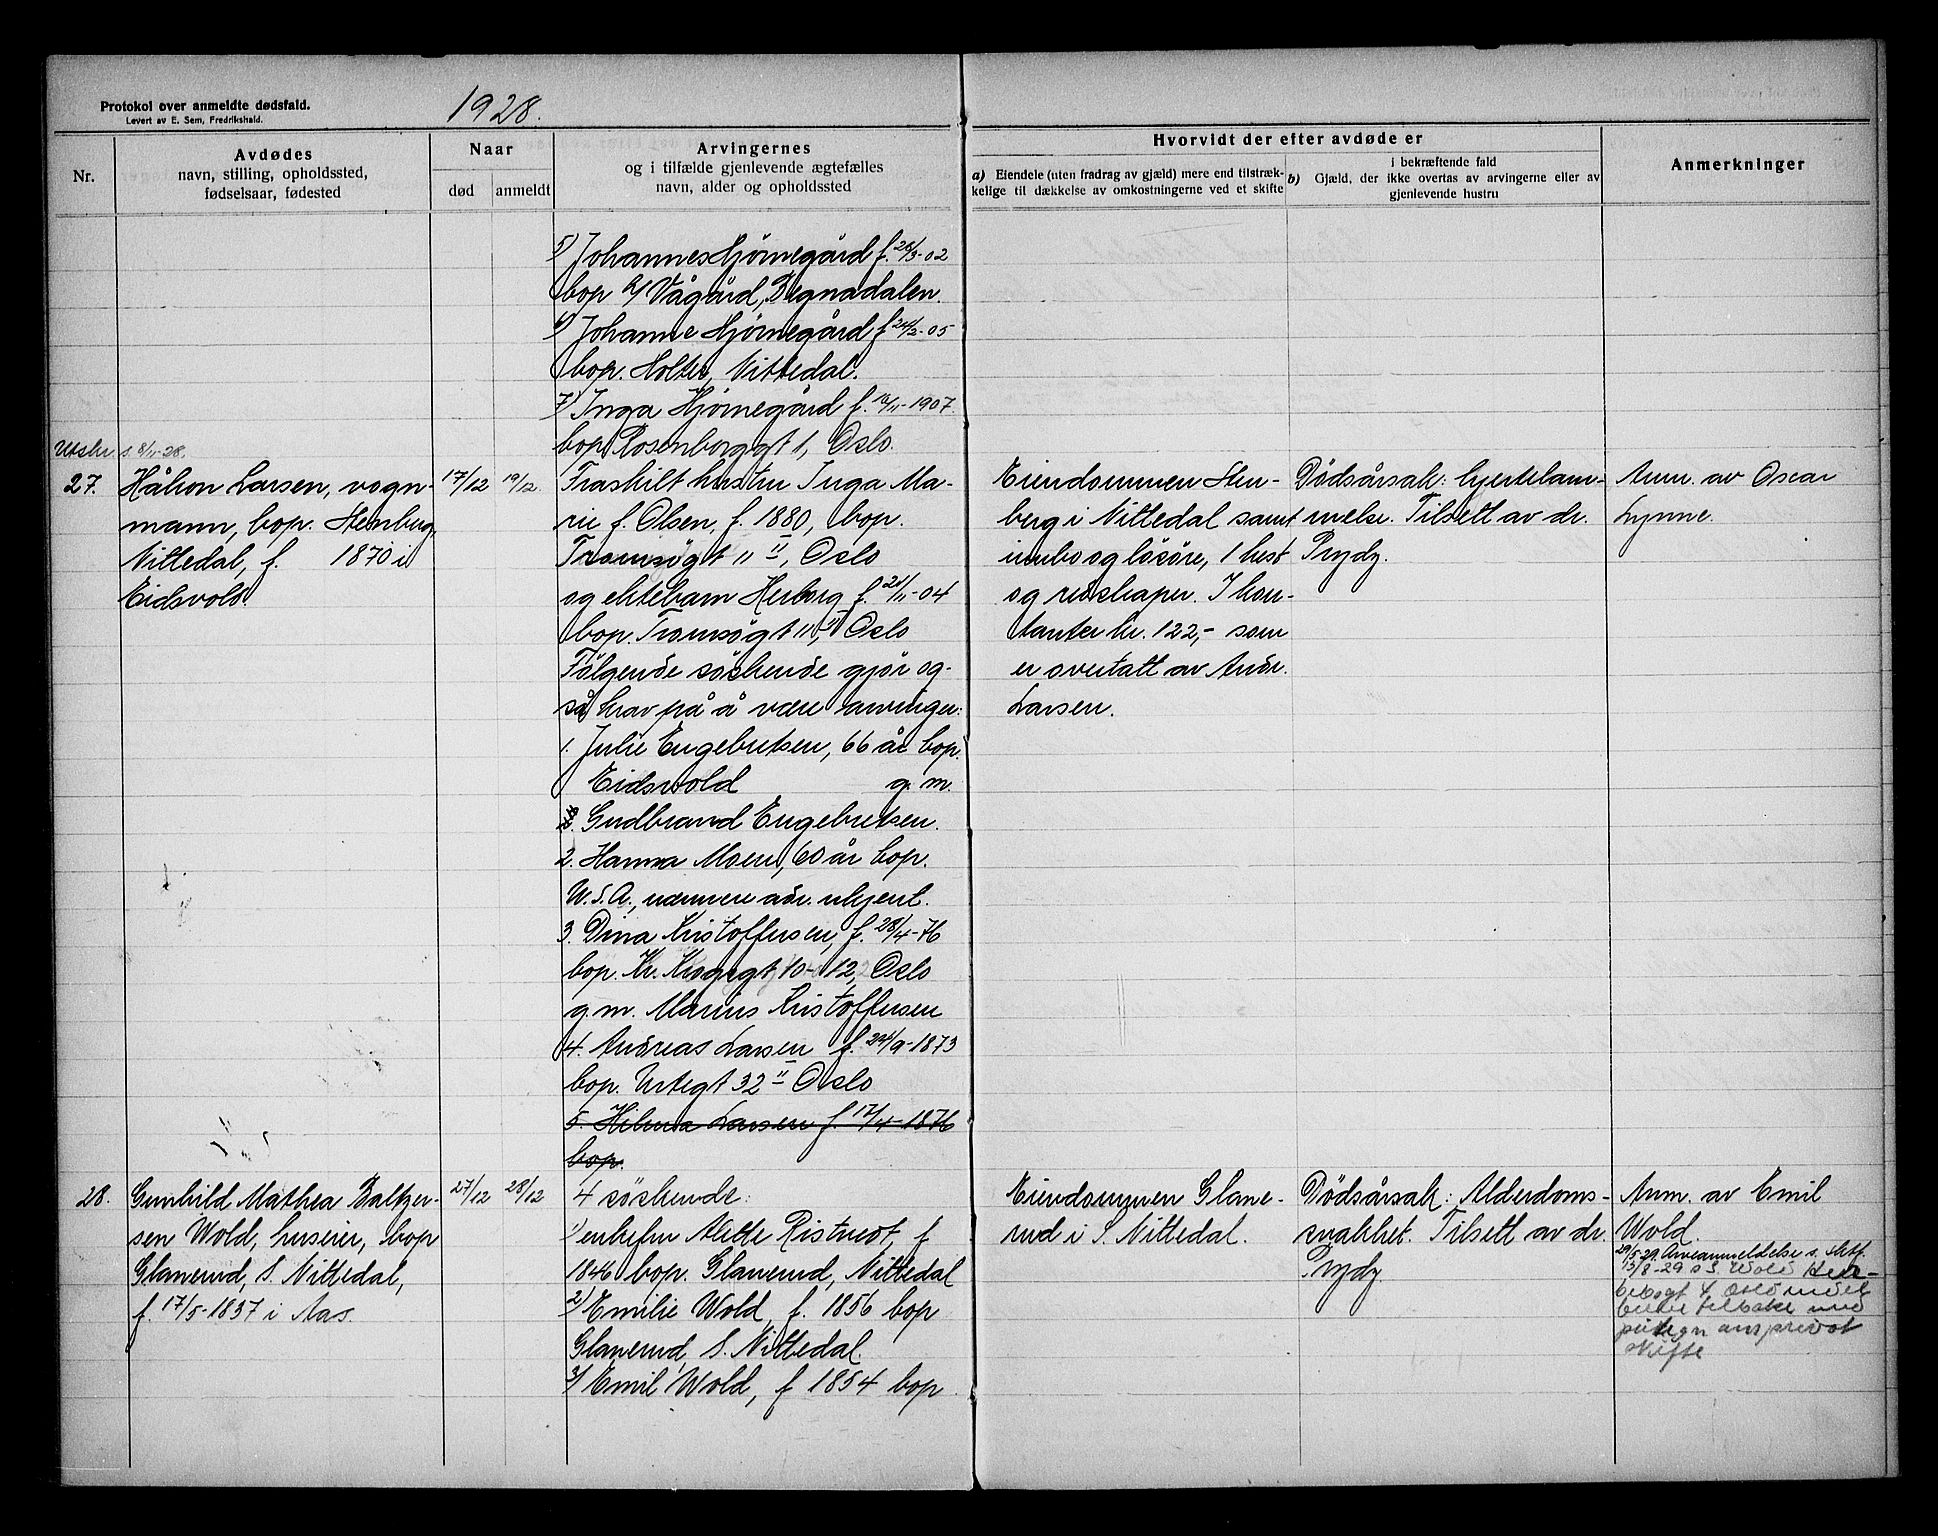 Protokol over anmeldte dødsfald.
Levert av E. Sem, Fredrikshald.
1928.
Nr.
Avdødes
navn, stilling, opholdssted,
fødselsaar, fødested
Naar
død
anmeldt
Arvingernes
og i tilfælde gjenlevende ægtefælles
navn, alder og opholdssted
Hvorvidt der efter avdøde er
a) Eiendele (uten fradrag av gjæld) mere end tilstræk-
kelige til dækkelse av omkostningerne ved et skifte
b)
i bekræftende fald
Gjæld, der ikke overtas av arvingerne eller av
gjenlevende hustru
Anmerkninger
5) Johannes Hjørnegård f. 28/3-02
bop Vågård, Begnadalen.
6) Johanne Hjørnegård f 24/2-05
bop. Holter, Nittedal.
7) Inga Hjørnegård f. 10/11-1907.
bop Rosenborggt 1, Oslo.
Utskr. s. 8/11-28.
27.
Håkon Larsen, vogn-
mann, bop. Stenberg,
Nittedal, f. 1870 i
Eidsvold.
17/12
19/12.
Fraskilt hustru Inga Ma-
rie f. Olsen, f. 1880, bop.
Tromsøgt 11 II, Oslo
og ektebarn Herborg f. 21/11-04
bop. Tromsøgt 11 II, Oslo
Følgende søskende gjør og-
så krav på å være arvinger:
1. Julie Engebretsen, 66 år bop.
Eidsvold g. m.
Gudbrand Engebretsen.
2. Hanna Moen, 60 år bop.
U.S.A., nærmere adr. ukjent.
3. Dina Kristoffersen, f. 28/4-76
bop. Kr. Kroggt 10-12, Oslo
g.m. Marius Kristoffersen
4. Andreas Larsen f. 24/9-1873
bop. Urtegt 32 II Oslo
5. Hilma Larsen f. 17/4-1876
bop.
Eiendommen Sten-
berg i Nittedal samt
innbo og løsøre, 1 hest
og redskaper. I kon-
tanter kr. 122,- som
er overtatt av Andr.
Larsen.
Dødsårsak: hjertelam-
melse. Tilsett av dr.
Prydz.
Anm. av Oscar
Lynne.
28.
Gunhild Mathea Baltzer-
sen Wold, huseier, bop
Glanerud, S. Nittedal,
f. 17/5-1837 i Aas.
27/12
28/12
4 søskende:
1) enkefru Alette Ristvedt, f
1846 bop. Glanerud, Nittedal
2) Emilie Wold, f. 1856 bop
Glanerud, S. Nittedal.
3) Emil Wold, f 1854 bop
Eiendommen Glane-
rud i S. Nittedal.
Dødsårsak: Alderdoms-
svakhet. Tilsett av dr.
Prydz
Anm. av Emil
Wold.
29/5-29 Arveanmeldelse s. skif.
13/8-29 Wold
4 Oslo
tilbake med
påtegn om privat
skifte